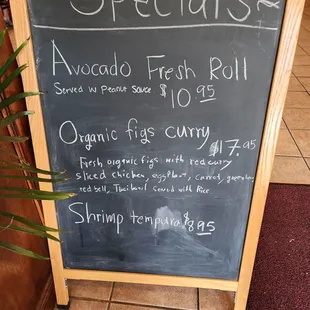 Specials
Avocado Fresh Roll
Served w Peanut sauce $10.95
Organic figs curry
$17.95
Fresh organic figs with red curry
sliced chicken, eggplant, carrot, green
red bell, Thai basil served with Rice
Shrimp tempura $8.95